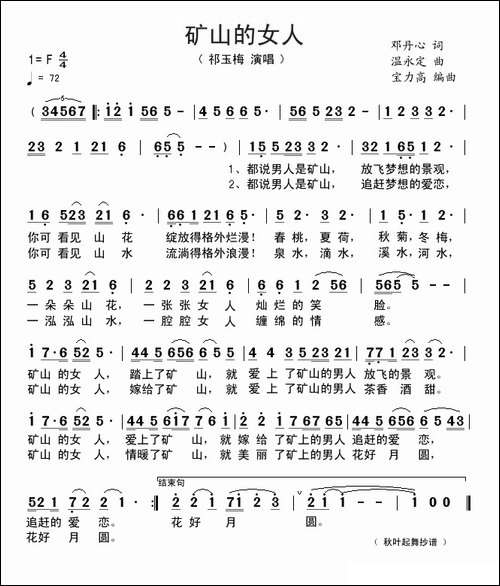 矿山的女人
（ 祁玉梅 演唱 ）
1= F 4/4
♩ = 72
邓丹心 词
温永定 曲
宝力高 编曲
( 34567 ‖: 1 2 1 56 5 - | 4 5 6 6 5 - | 56 5 23 2 - | 1 2 3 2 3 2 ·
23 2 1 21 6 · | 65 5 - ) | 1 5 5 23 2 · | 32 1 65 1 2 ·
1、都说男人是矿山， 放飞梦想的景观，
2、都说男人是矿山， 追赶梦想的爱恋，
1 6 523 21 6 · | 66 1 61 6 5 · | 35 · 6 2 · | 1 5 · 1 2 ·
你可 看见 山 花 绽放得格外烂漫！ 春桃，夏荷， 秋菊，冬梅，
你可 看见 山 水 流淌得格外浪漫！ 泉水，滴水， 溪水，河水，
5 2 23 21 6 | 5 2 3 21 6 | 6 6 1 2 56 | 565 - - -
一 朵朵 山 花， 一 张张 女 人 灿 烂的 笑 脸。
一 泓泓 山 水， 一 腔腔 女 人 缠 绵的 情 感。
1 7·6 52 5 · | 44 5 656 6 5 | 4 4 3 5 23 21 | 77 1 23 2 ·
矿山 的 女 人， 踏上了矿 山， 就 爱 上 了矿山的男人 放飞的 景 观。
矿山 的 女 人， 嫁给了矿 山， 就 爱 上 了矿山的男人 茶香 酒 甜。
1 7·6 52 5 · | 44 5 617 6 2 | 2 1 2 17 67 65 | 44 5 656 6 5 43
矿山 的 女 人， 爱上了矿 山， 就 嫁 给 了矿上的男人 追赶的爱 恋，
矿山 的 女 人， 情暖了矿 山， 就 美 丽 了矿上的男人 花好 月 圆，
结束句
52 1 72 2 · | 1 - - - :‖ 2 1 2 123 3 | 21 1 - - | 1 00 ‖
追赶的 爱 恋。 花 好 月 圆。
花好 月 圆。
（ 秋叶起舞抄谱 ）